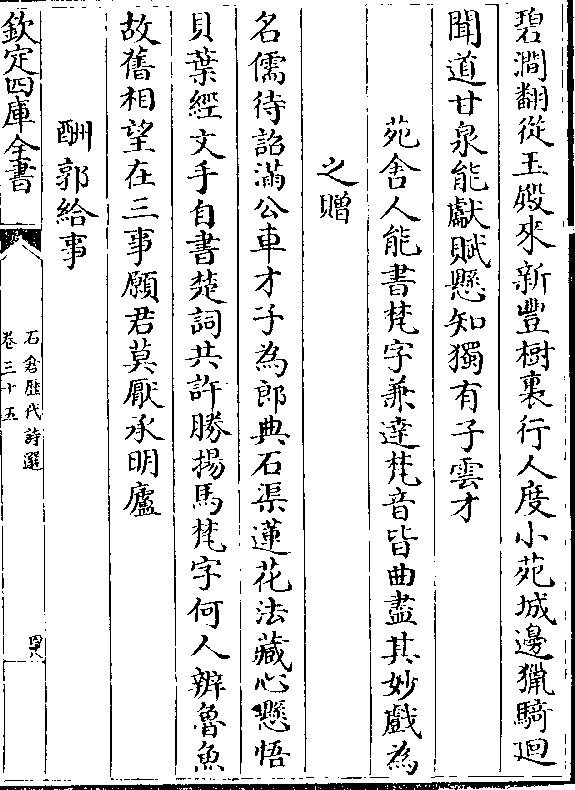 碧澗翻從玉殿來新豐樹裏行人度小苑城邊獵騎迴
聞道甘泉能獻賦懸知獨有子雲才
苑舍人能書梵字兼達梵音皆曲盡其妙戲為
之贈
名儒待詔滿公車才子為郎典石渠蓮花法藏心懸悟
貝葉經文手自書楚詞共許勝揚馬梵字何人辨魯魚
故舊相望在三事願君莫厭承明廬
酬郭給事
欽定四庫全書
石倉歷代詩選
卷三十五
四八